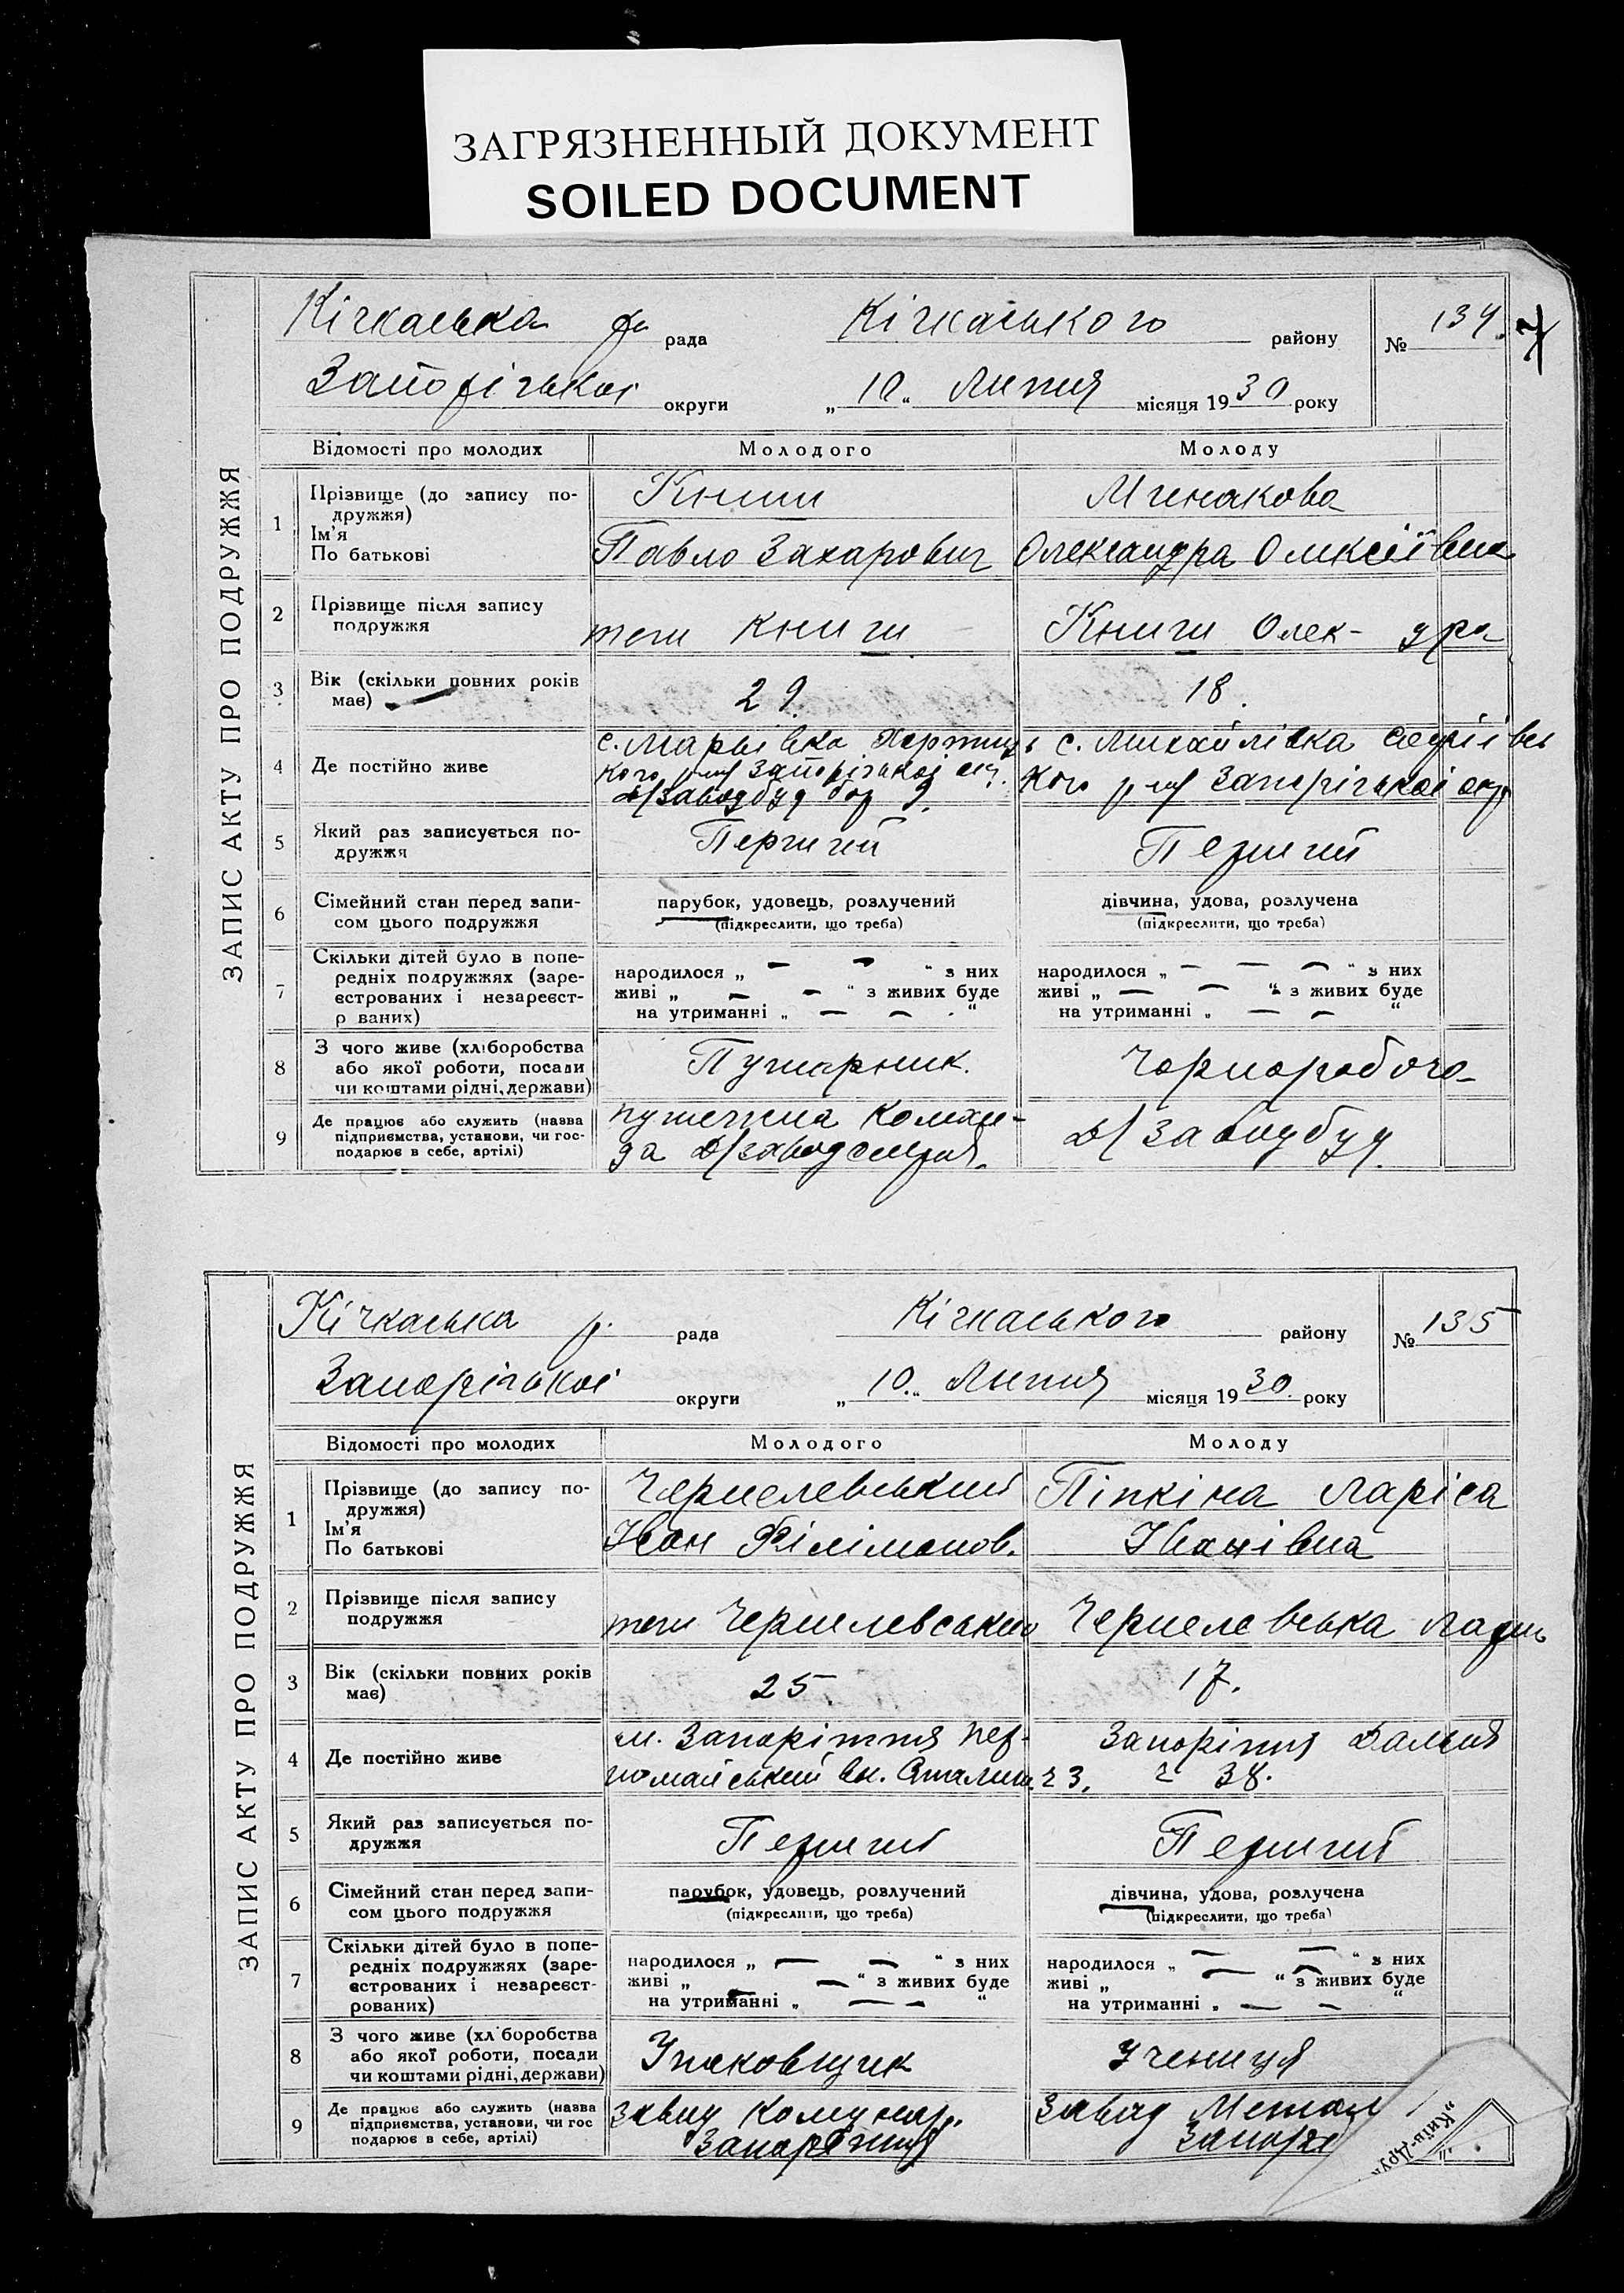 ЗАГРЯЗНЕННЫЙ ДОКУМЕНТ
SOILED DOCUMENT
ЗАПИС АКТУ ПРО ПОДРУЖЖЯ
Кічкаська рада Кічкаського району № 134
Запорізької округи „ 10 “ Липня місяця 1930 року
Відомості про молодих Молодого Молоду
1 Прізвище (до запису по-
дружжя)
Ім'я
По батькові
Книш Минакова
Павло Захарович Олександра Олексіївна
2 Прізвище після запису
подружжя
Книш Книш Олек-дра
3 Вік (скільки повних років
має)
29. 18.
4 Де постійно живе
с. Мар'ївка с. Михайлівка
кого Запорізької окр. кого Запорізької окр
Д/заводбуд 9.
5 Який раз записується по-
дружжя
Перший Перший
6 Сімейний стан перед запи-
сом цього подружжя
парубок, удовець, розлучений дівчина, удова, розлучена
(підкреслити, що треба) (підкреслити, що треба)
7 Скільки дітей було в попе-
редніх подружжях (заре-
єстрованих і незареєст-
р ваних)
народилося „ — — “ з них народилося „ — — — “ з них
живі „ — — “ з живих буде живі „ — — “ з живих буде
на утриманні „ — — “ на утриманні „ — — “
8 З чого живе (хліборобства
або якої роботи, посади
чи коштами рідні, держави)
Пожарник. Чорноробоча
9 Де працює або служить (назва
підприємства, установи, чи гос-
подарює в себе, артілі)
команда Д/заводбуд
ЗАПИС АКТУ ПРО ПОДРУЖЖЯ
Кічкаська р. рада Кічкаського району № 135
Запорізької округи „ 10. “ Липня місяця 1930. року
Відомості про молодих Молодого Молоду
1 Прізвище (до запису по-
дружжя)
Ім'я
По батькові
Чернелевський Піпкіна Ларіса
Іван Філімонов. Іванівна
2 Прізвище після запису
подружжя
Чернелевський Чернелевська
3 Вік (скільки повних років
має)
25 17.
4 Де постійно живе
м. Запоріжжя Пер- Запоріжжя
вомайський 23. 38.
5 Який раз записується по-
дружжя
Перший Перший
6 Сімейний стан перед запи-
сом цього подружжя
парубок, удовець, розлучений дівчина, удова, розлучена
(підкреслити, що треба) (підкреслити, що треба)
7 Скільки дітей було в попе-
редніх подружжях (заре-
єстрованих і незареєст-
рованих)
народилося „ — — “ з них народилося „ — — “ з них
живі „ — “ з живих буде живі „ — — “ з живих буде
на утриманні „ — — “ на утриманні „ — — “
8 З чого живе (хл боробства
або якої роботи, посади
чи коштами рідні, держави)
Упаковщик Учениця
9 Де працює або служить (назва
підприємства, установи, чи гос
подарює в себе, артілі)
Завод Комунар. Завод Метал
Запоріжжя Запорі
„Київ-Дру